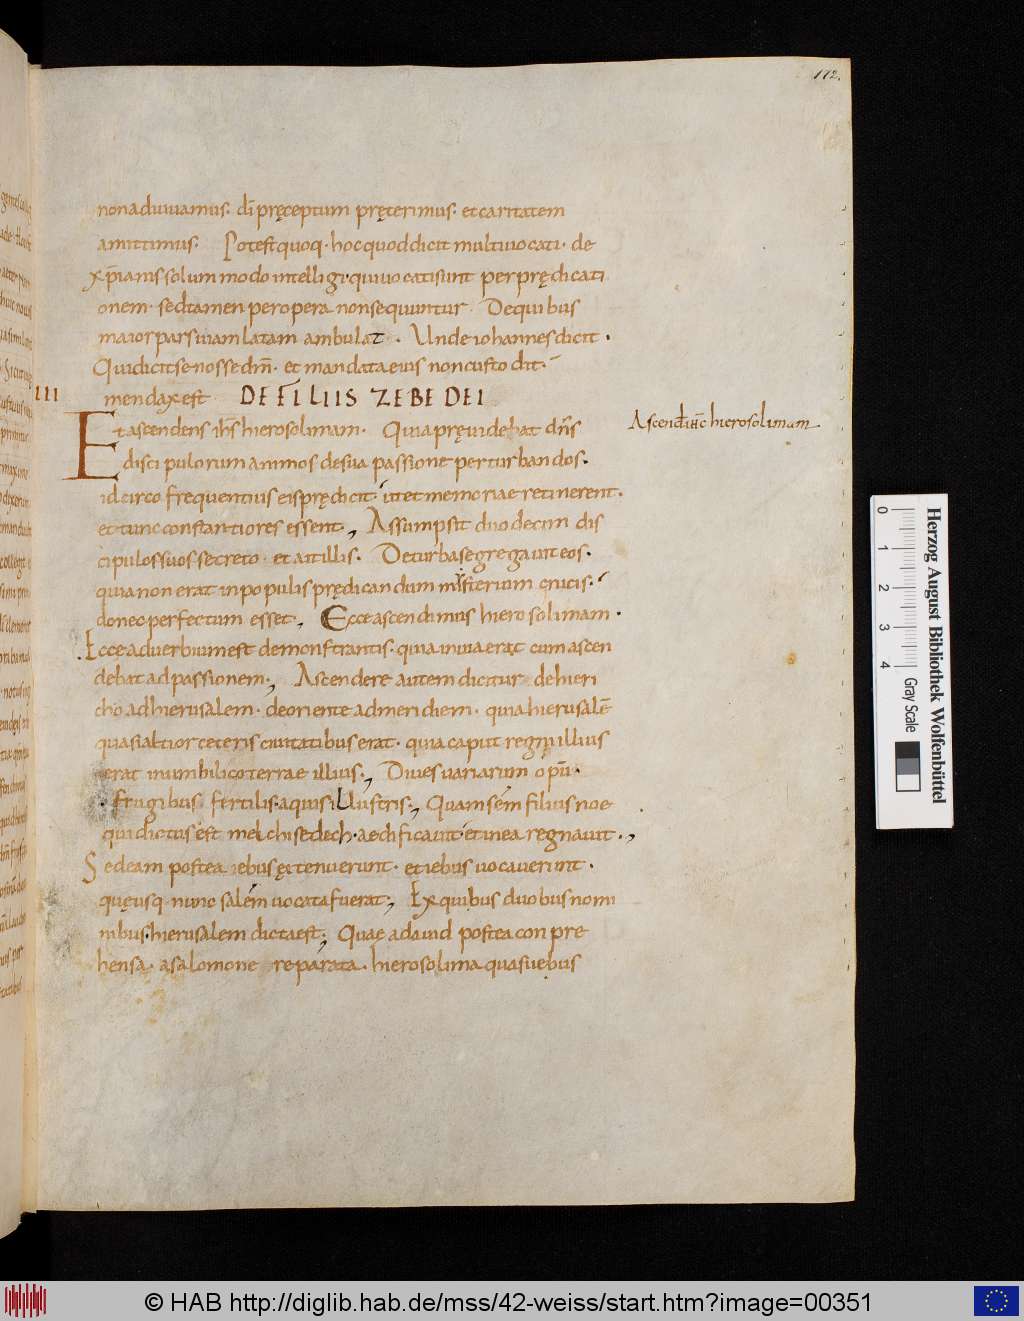 172.
non adiuuamus. dī pręceptum pręterimus. et caritatem
amittimus. Potest quoq· hoc quod dicit multi uocati. de
xp̄ianis solummodo intelligi. qui uocati sunt per prędicati
onem. sed tamen per opera non sequuntur. De quibus
maior pars uiam latam ambulat. Unde iohannes dicit.
Qui dicit se nosse dm̄. et mandata eius non custodit.
mendax est DE FILIIS ZEBEDEI
III
Et ascendens ih̄s hierosolimam. Quia pręuidebat dn̄s
discipulorum animos de sua passione perturbandos.
idcirco frequentius eis prędicit. ut et memoriae retinerent.
et tunc constantiores essent, Assumpsit duodecim dis
cipulos suos secreto. et ait illis. De turba segregauit eos.
quia non erat in populis prędicandum misterium crucis.
donec perfectum esset, Ecce ascendimus hierosolimam.
Ecce aduerbium est demonstrantis. quia in uia erat cum ascen
debat ad passionem, Ascendere autem dicitur de hieri
cho ad hierusalem. de oriente ad meridiem. quia hierusalē
quasi altior ceteris ciuitatibus erat. quia caput regni illius
erat in umbilico terrae illius, Diues uariarum opū.
frugibus fertilis. aquis illustris, Quam sem filius noe
qui dictus est melchisedech. aedificauit et in ea regnauit,
Sed eam postea iebus ęxtenuerunt. et iebus uocauerunt.
quęusq· nunc salem uocata fuerat, Ex quibus duobus nomi
nibus. hierusalem dicta est, Quae a dauid postea conpre
hensa. a salomone reparata. hierosolima quasi iebus
Ascendit ih̄c hierosolimam
Herzog August Bibliothek Wolfenbüttel
0 1 2 3 4 Gray Scale
© HAB http://diglib.hab.de/mss/42-weiss/start.htm?image=00351